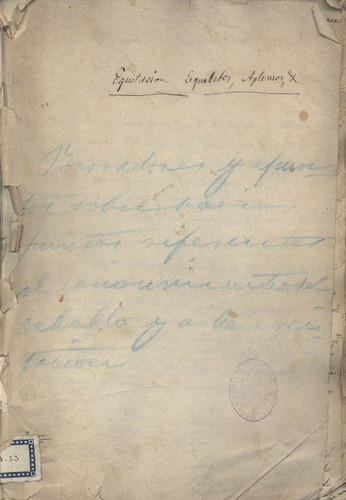 Equitacion Esqueletos, Aplomos, &
Borradores y apun-
tos sobre varios
puntos referentes
al conocimiento del
caballo y a la equi-
tacion